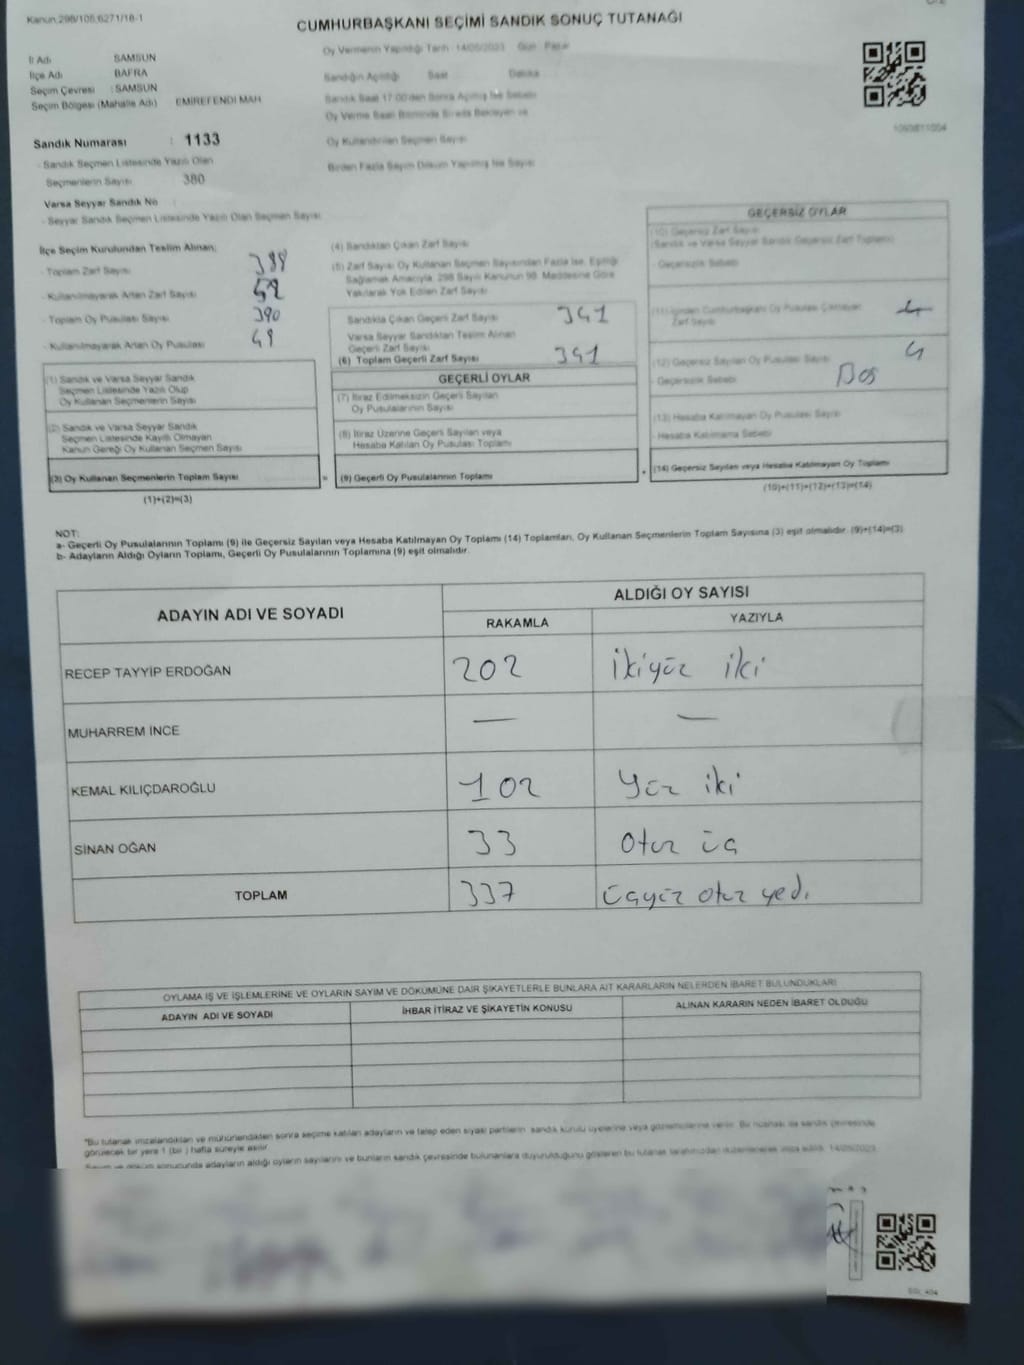 Kanun:298/105;6271/18-1
CUMHURBAŞKANI SEÇİMİ SANDIK SONUÇ TUTANAĞI
İl Adı SAMSUN
İlçe Adı BAFRA
Seçim Çevresi : SAMSUN
Seçim Bölgesi (Mahalle Adı) EMİREFENDİ MAH
Sandık Numarası : 1133
- Sandık Seçmen Listesinde Yazılı Olan
Seçmenlerin Sayısı 380
Varsa Seyyar Sandık No
- Seyyar Sandık Seçmen Listesinde Yazılı Olan Seçmen Sayısı
Oy Vermenin Yapıldığı Tarih :14/05/2023 Gün : Pazar
Sandığın Açıldığı Saat Dakika
Sandık Saat 17:00'den Sonra Açılmış İse Sebebi
Oy Verme Saati Bitiminde Sırada Bekleyen ve
Oy Kullandırılan Seçmen Sayısı
Birden Fazla Sayım Döküm Yapılmış İse Sayısı
İlçe Seçim Kurulundan Teslim Alınan;
- Toplam Zarf Sayısı
- Kullanılmayarak Artan Zarf Sayısı
- Toplam Oy Pusulası Sayısı 390
- Kullanılmayarak Artan Oy Pusulası 49
(1) Sandık ve Varsa Seyyar Sandık
Seçmen Listesinde Yazılı Olup
Oy Kullanan Seçmenlerin Sayısı
(2) Sandık ve Varsa Seyyar Sandık
Seçmen Listesinde Kayıtlı Olmayan
Kanun Gereği Oy Kullanan Seçmen Sayısı
(3) Oy Kullanan Seçmenlerin Toplam Sayısı
(1)+(2)=(3)
(4) Sandıktan Çıkan Zarf Sayısı
(5) Zarf Sayısı Oy Kullanan Seçmen Sayısından Fazla İse, Eşitliği
Sağlamak Amacıyla, 298 Sayılı Kanunun 98. Maddesine Göre
Yakılarak Yok Edilen Zarf Sayısı
Sandıkta Çıkan Geçerli Zarf Sayısı 341
Varsa Seyyar Sandıktan Teslim Alınan
Geçerli Zarf Sayısı
(6) Toplam Geçerli Zarf Sayısı 341
GEÇERLİ OYLAR
(7) İtiraz Edilmeksizin Geçerli Sayılan
Oy Pusulalarının Sayısı
(8) İtiraz Üzerine Geçerli Sayılan veya
Hesaba Katılan Oy Pusulası Toplamı
= (9) Geçerli Oy Pusulalarının Toplamı
GEÇERSİZ OYLAR
(10) Geçersiz Zarf Sayısı
(Sandık ve Varsa Seyyar Sandık Geçersiz Zarf Toplamı)
- Geçersizlik Sebebi
(11) İçinden Cumhurbaşkanı Oy Pusulası Çıkmayan
Zarf Sayısı
(12) Geçersiz Sayılan Oy Pusulası Sayısı 4
- Geçersizlik Sebebi Boş
(13) Hesaba Katılmayan Oy Pusulası Sayısı
- Hesaba Katılmama Sebebi
+ (14) Geçersiz Sayılan veya Hesaba Katılmayan Oy Toplamı
(10)+(11)+(12)+(13)=(14)
NOT:
a- Geçerli Oy Pusulalarının Toplamı (9) ile Geçersiz Sayılan veya Hesaba Katılmayan Oy Toplamı (14) Toplamları, Oy Kullanan Seçmenlerin Toplam Sayısına (3) eşit olmalıdır. (9)+(14)=(3)
b- Adayların Aldığı Oyların Toplamı, Geçerli Oy Pusulalarının Toplamına (9) eşit olmalıdır.
ADAYIN ADI VE SOYADI ALDIĞI OY SAYISI
RAKAMLA YAZIYLA
RECEP TAYYİP ERDOĞAN 202 İkiyüz iki
MUHARREM İNCE — —
KEMAL KILIÇDAROĞLU 102 Yüz iki
SİNAN OĞAN 33 Otuz üç
TOPLAM 337 Üçyüz otuz yedi
OYLAMA İŞ VE İŞLEMLERİNE VE OYLARIN SAYIM VE DÖKÜMÜNE DAİR ŞİKAYETLERLE BUNLARA AİT KARARLARIN NELERDEN İBARET BULUNDUKLARI
ADAYIN ADI VE SOYADI İHBAR İTİRAZ VE ŞİKAYETİN KONUSU ALINAN KARARIN NEDEN İBARET OLDUĞU
*Bu tutanak imzalandıktan ve mühürlendikten sonra seçime katılan adayların ve talep eden siyasi partilerin sandık kurulu üyelerine veya gözlemcilerine verilir. Bir nüshası da sandık çevresinde
görülecek bir yere 1 (bir) hafta süreyle asılır.
Sayım ve döküm sonucunda adayların aldığı oyların sayılarını ve bunların sandık çevresinde bulunanlara duyurulduğunu gösteren bu tutanak tarafımızdan düzenlenerek imza edildi. 14/05/2023